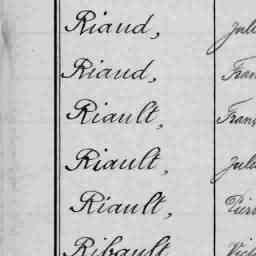 Riaud, Juli
Riaud, Fran
Riault, Fran
Riault, Juli
Riault, Pierr
Ribault